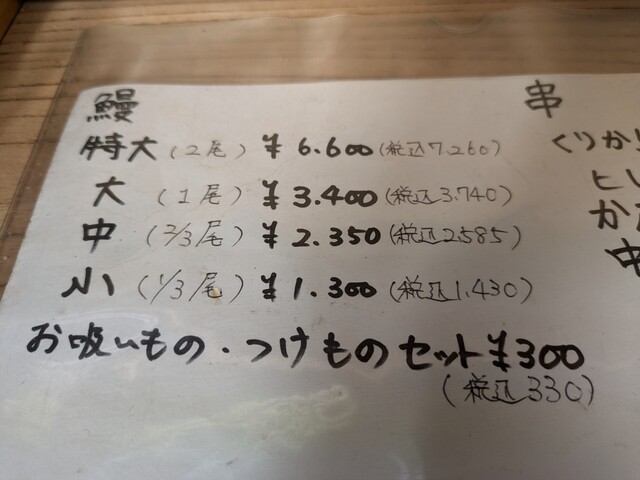 鰻
特大(2尾) ¥6.600(税込7.260)
大(1尾) ¥3.400(税込3.740)
中(2/3尾) ¥2.350(税込2.585)
小(1/3尾) ¥1.300(税込1.430)
お吸いもの・つけものセット¥300
(税込330)
串
くりから